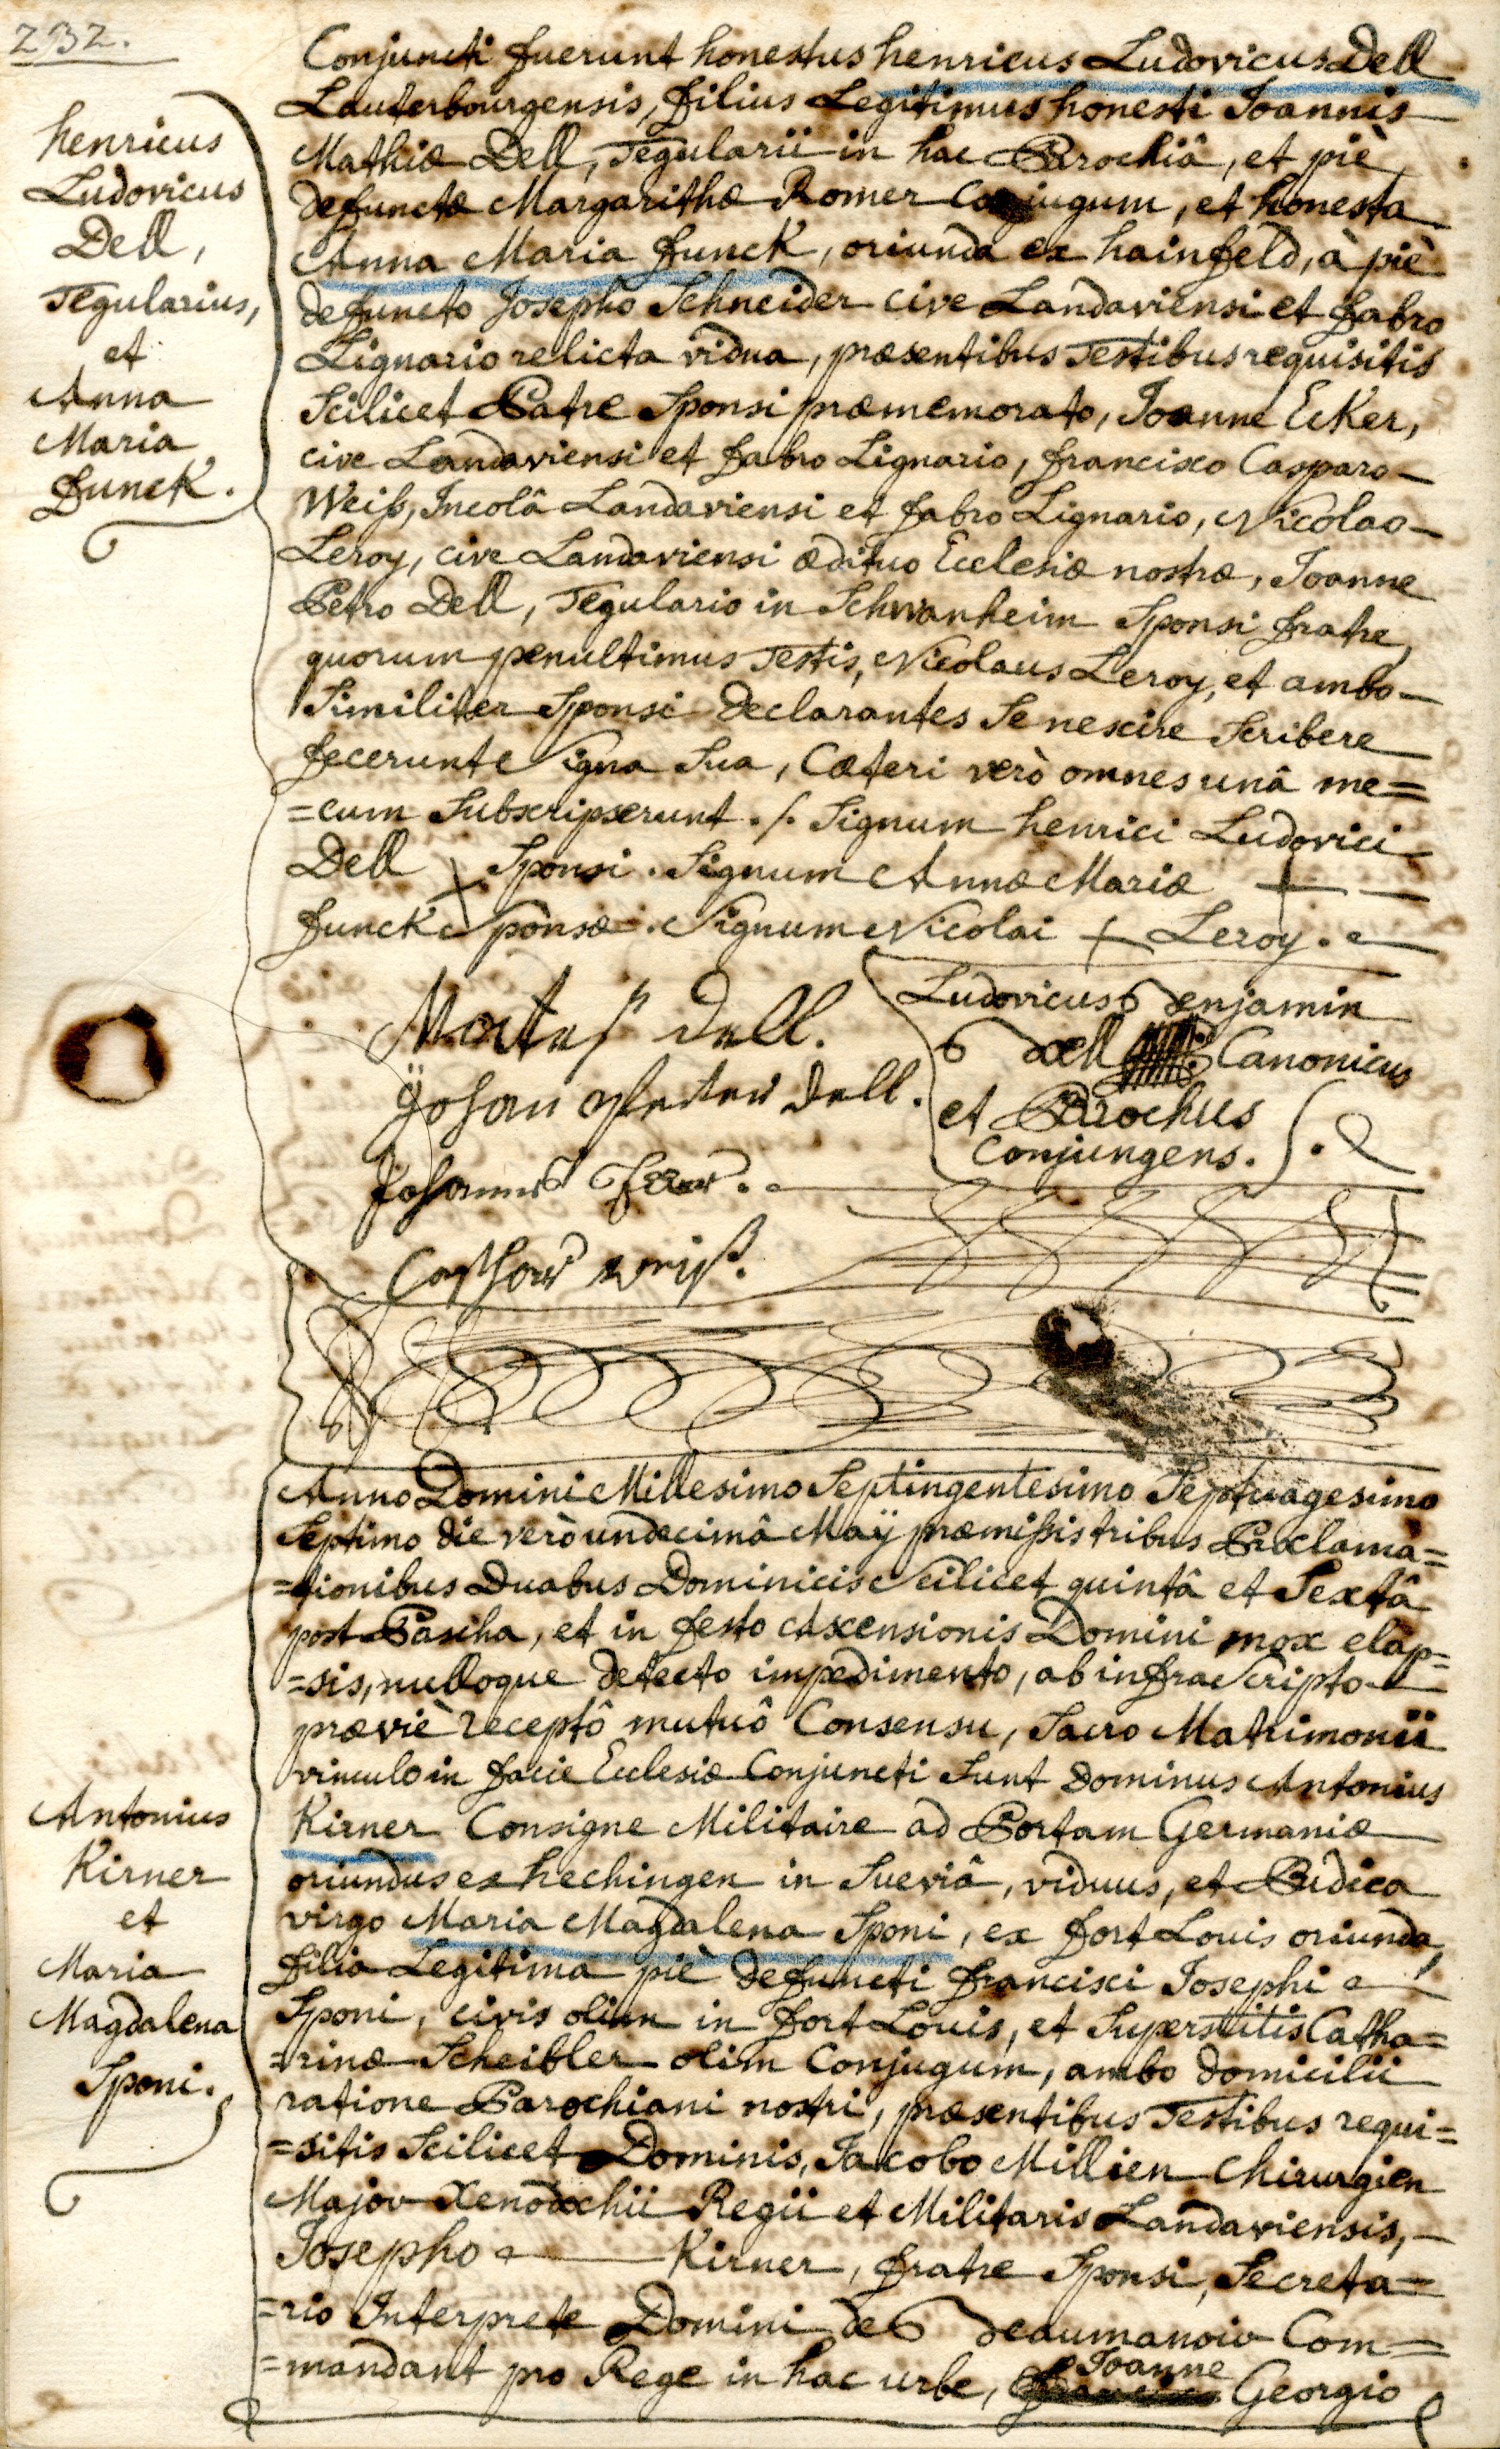 232.
henricus
Ludovicus
Dell,
Tegularius,
et
Anna
Maria
Funck.
Conjuncti fuerunt honestus henricus Ludovicus Dell
Lauterbourgensis, filius Legitimus honesti Joannis
Mathiæ Dell, Tegularii in hac Parochiâ, et piè
defunctæ Margarithæ Romer Conjugum, et honesta
Anna Maria Funck, oriunda ex hainfeld, à piè
defuncto Josepho Schneider cive Landaviensi et fabro
Lignario relicta vidua, præsentibus Testibus requisitis
Scilicet Patre Sponsi præmemorato, Joanne Ecker,
cive Landaviensi et fabro Lignario, francisco Casparo
Weiß, Incolâ Landaviensi et fabro Lignario, Nicolao
Leroy, cive Landaviensi ædituo Ecclesiæ nostræ, Joanne
Petro Dell, Tegulario in Schwanheim Sponsi fratre,
quorum penultimus Testis, Nicolaus Leroy, et ambo
Similiter Sponsi declarantes Se nescire Scribere
fecerunt Signa Sua, Cæteri verò omnes unâ me=
=cum Subscripserunt ./. Signum henrici Ludovici
Dell + Sponsi. Signum Annæ Mariæ +
Funck Sponsæ. Signum Nicolai + Leroy.
Mates Dell.
Johan Peter Dell.
Johannes
Casper weiß.
Ludovicus Benjamin
Canonicus
et Parochus
Conjungens.
Anno Domini Millesimo Septingentesimo Septuagesimo
Septimo die verò undecimâ Maÿ præmissis tribus Proclama=
=tionibus Duabus Dominicis Scilicet quintâ et Sextâ
post Pascha, et in festo Ascensionis Domini mox elap=
=sis, nulloque detecto impedimento, ab infra Scripto
præviè receptô mutuô Consensu, Sacro Matrimonii
vinculo in facie Ecclesiæ Conjuncti Sunt Dominus Antonius
Kirner Consigne Militaire ad Portam Germaniæ
oriundus ex hechingen in Sueviâ, viduus, et Pudica
virgo Maria Magdalena Sponi, ex fort Louis oriunda,
filia Legitima piè defuncti francisci Josephi
Sponi, civis olim in fort Louis, et Superstitis Catha=
=rinæ Scheibler olim Conjugum, ambo domicilii
ratione Parochiani nostri, præsentibus Testibus requi=
=sitis Scilicet Dominis, Jacobo Millien Chirurgien
Major Xenodochii Regii et Militaris Landaviensis,
Josepho Kirner, fratre Sponsi, Secreta=
=rio Interprete Domini de Beaumanoir Com=
=mandant pro Rege in hac urbe, Joanne Georgio
Antonius
Kirner
et
Maria
Magdalena
Sponi.